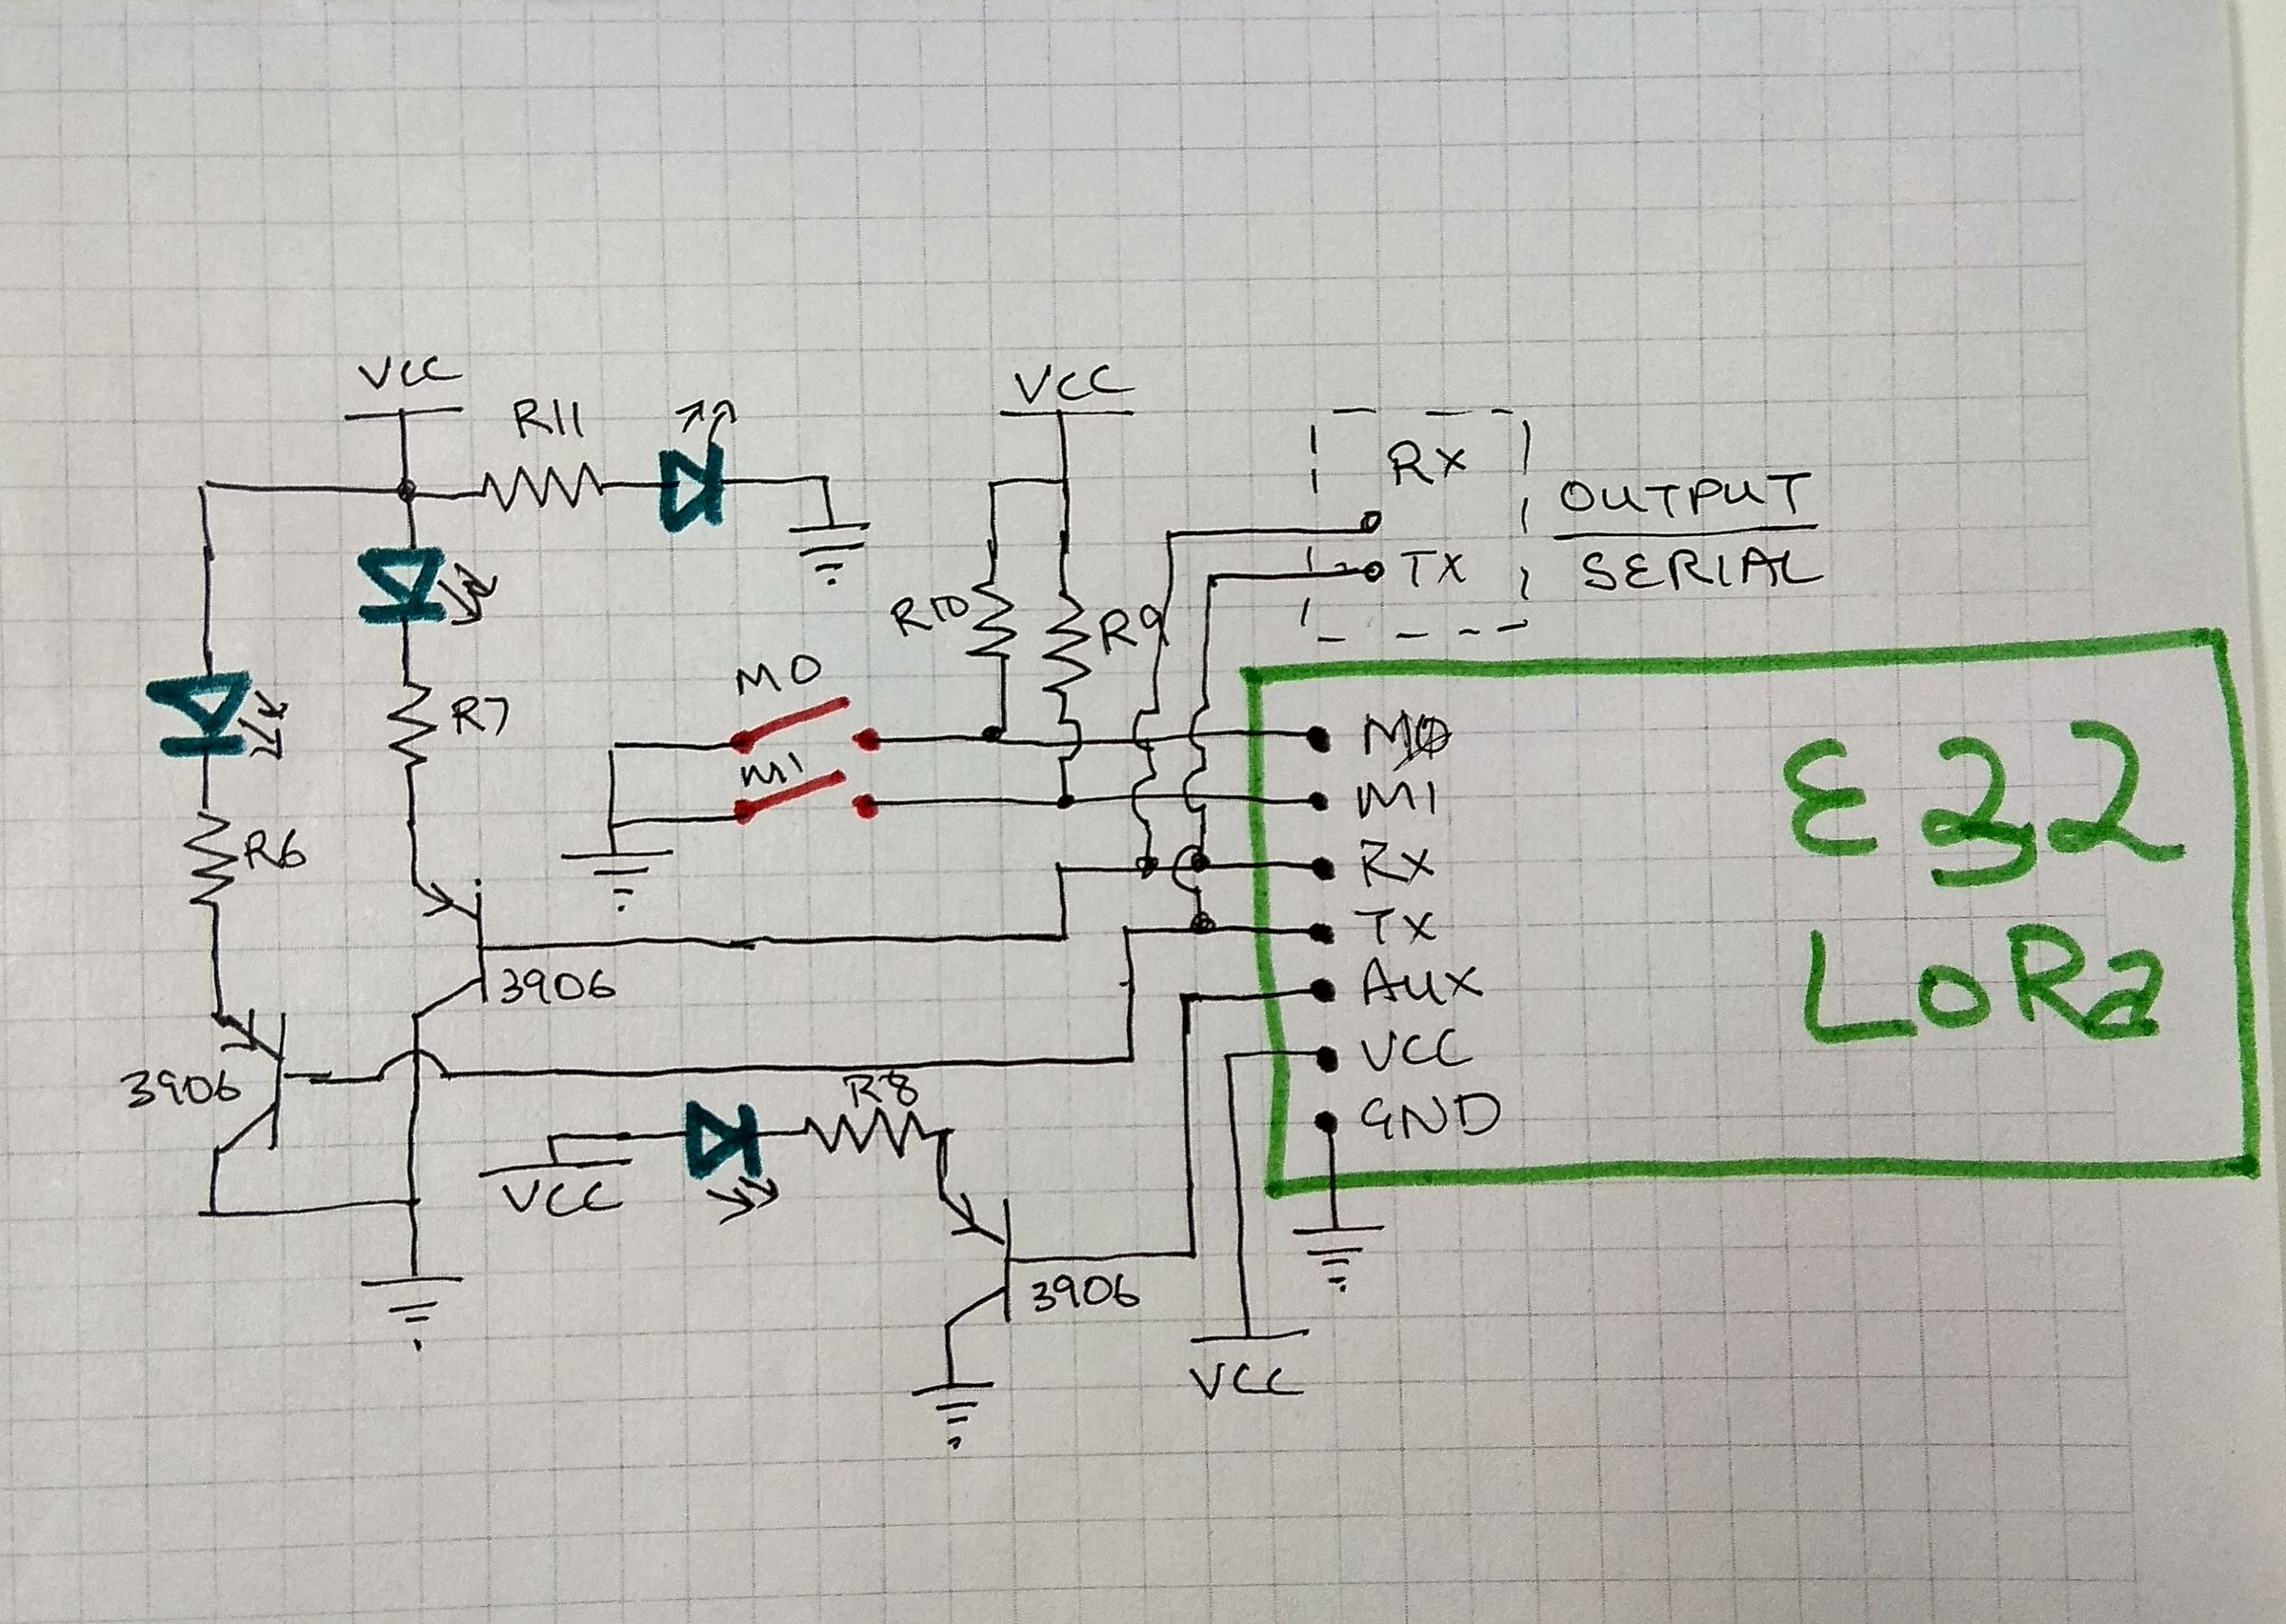 VCC
R11
VCC
Rx
OUTPUT
TX
SERIAL
R10
R9
M0
R7
M1
R6
MØ
M1
Rx
TX
AUX
VCC
GND
E32
LoRa
3906
3906
R8
VCC
3906
VCC